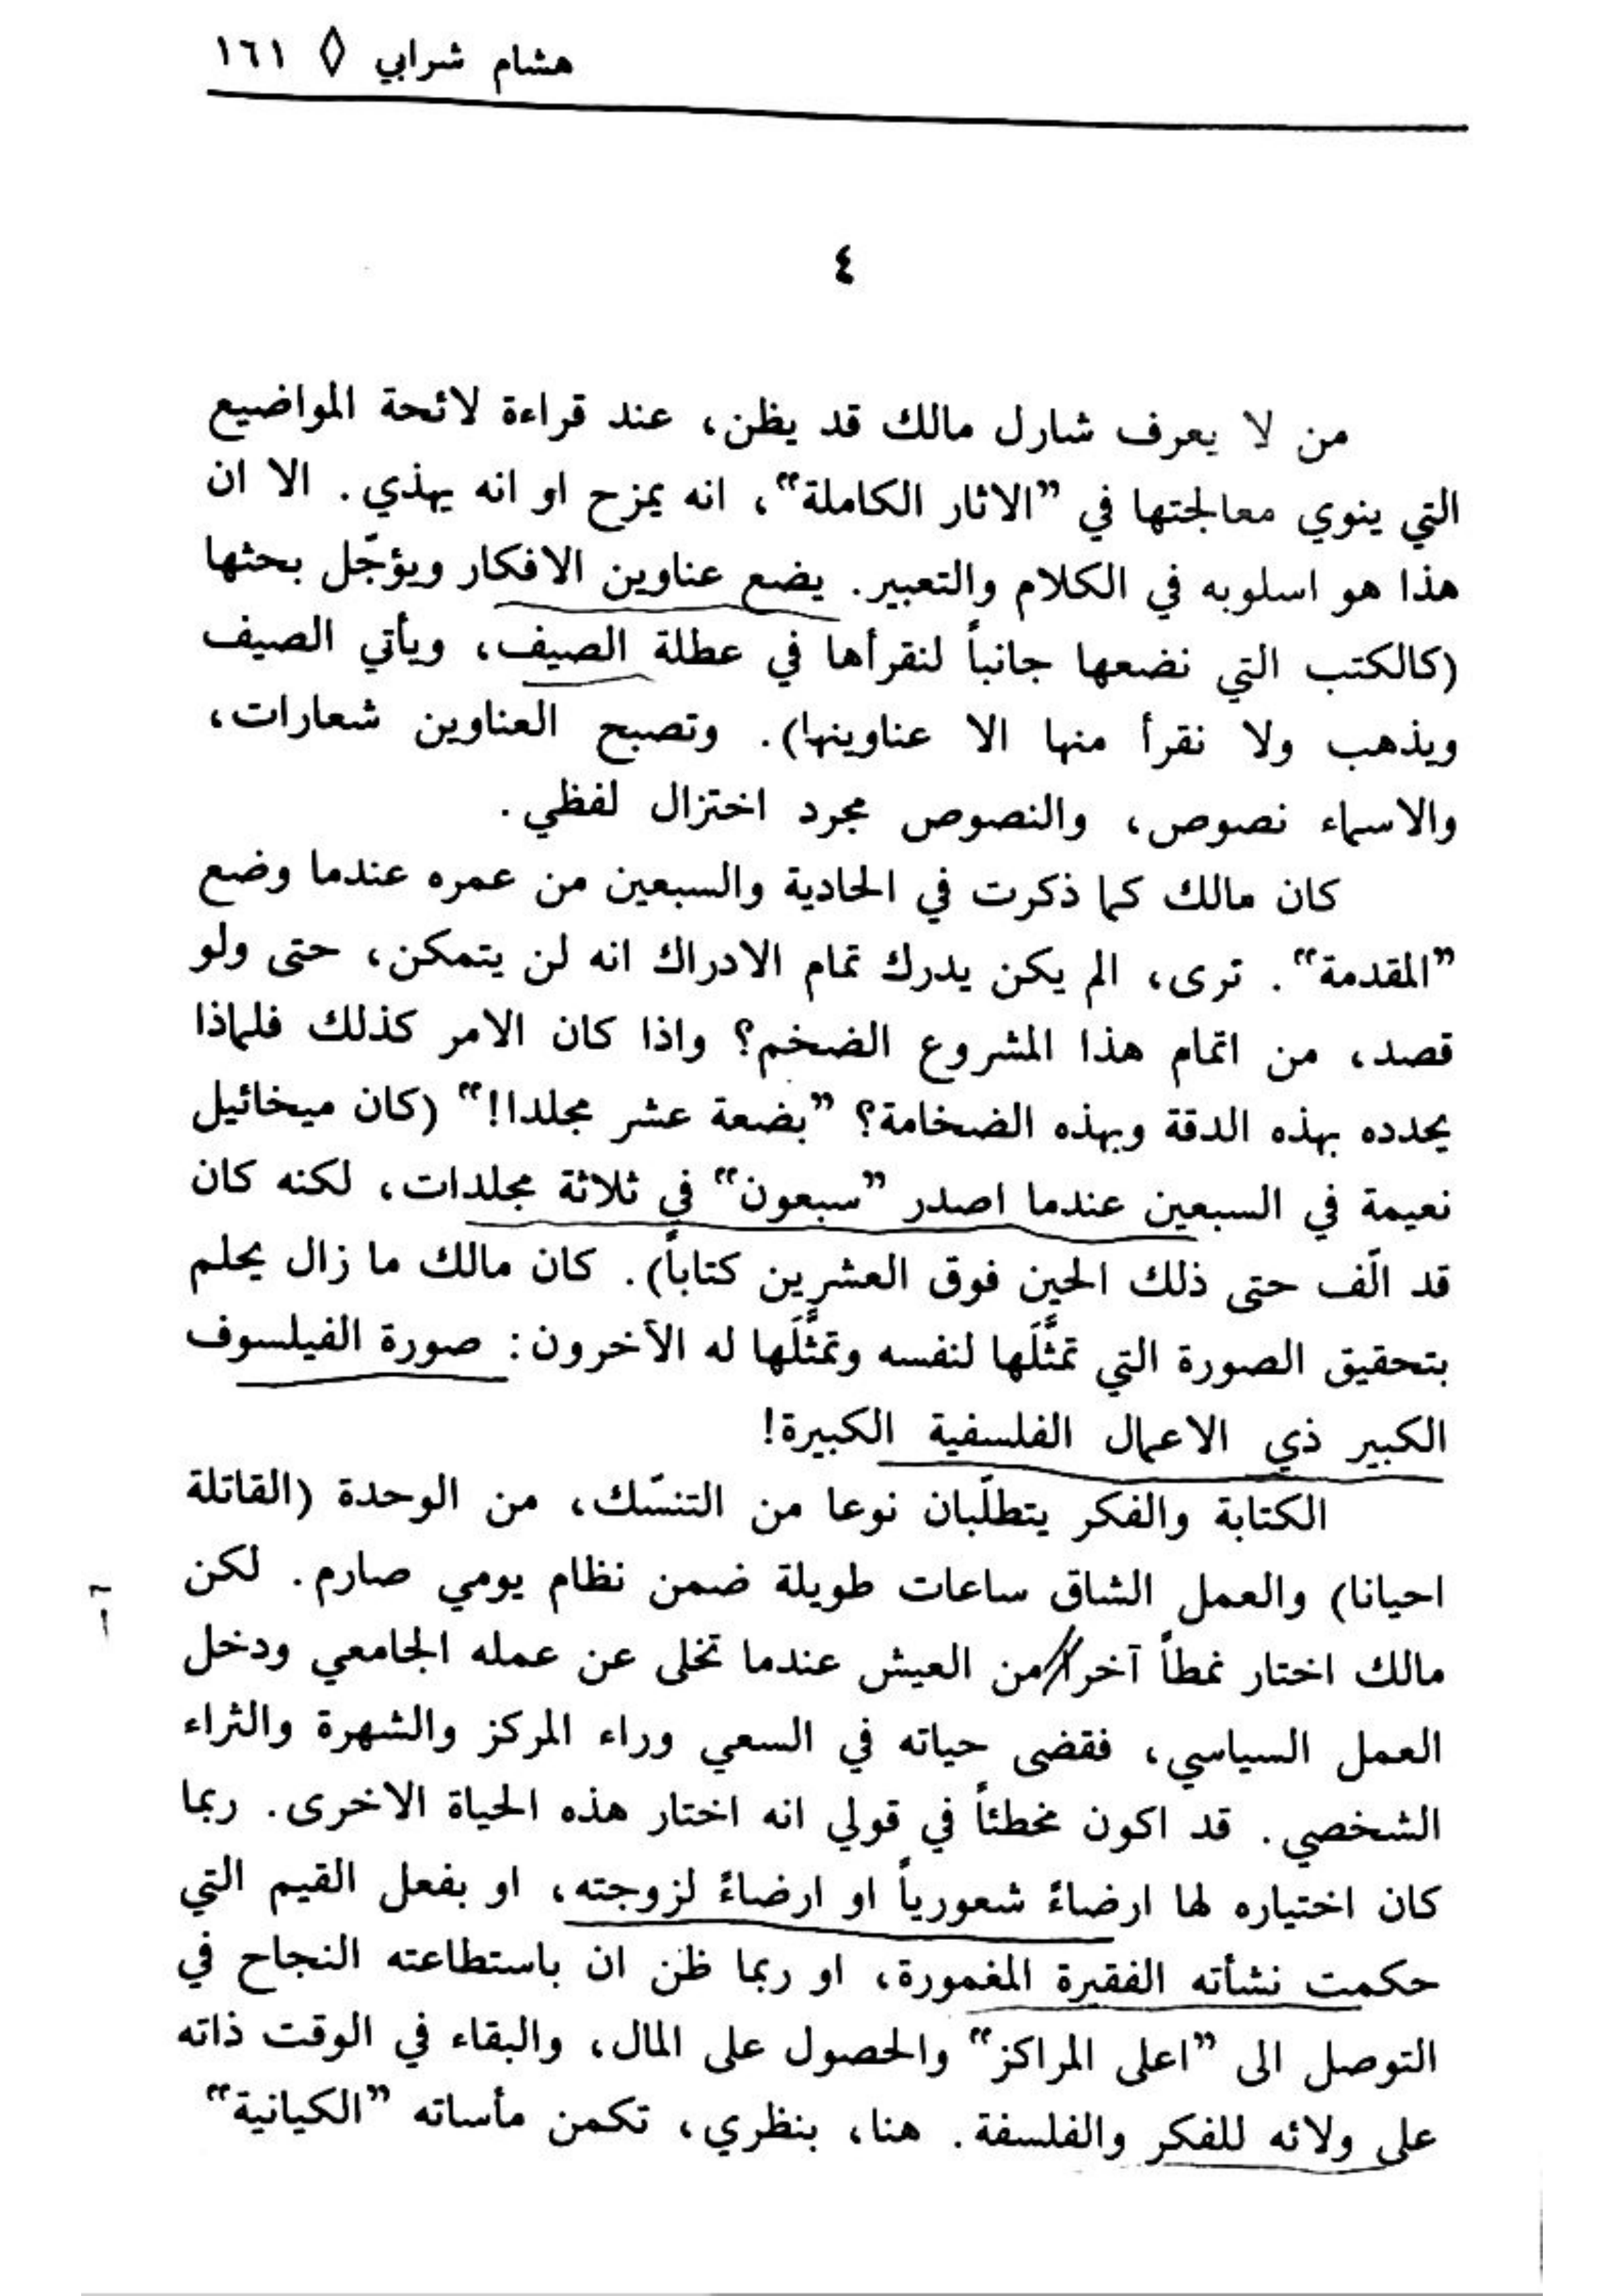 هشام شرابي ◊ ١٦١
٤
من لا يعرف شارل مالك قد يظن، عند قراءة لائحة المواضيع
التي ينوي معالجتها في ”الاثار الكاملة“، انه يمزح او انه يهذي. الا ان
هذا هو اسلوبه في الكلام والتعبير. يضع عناوين الافكار ويؤجّل بحثها
(كالكتب التي نضعها جانباً لنقرأها في عطلة الصيف، ويأتي الصيف
ويذهب ولا نقرأ منها الا عناوينها). وتصبح العناوين شعارات،
والاسماء نصوص، والنصوص مجرد اختزال لفظي.
كان مالك كما ذكرت في الحادية والسبعين من عمره عندما وضع
”المقدمة“. ترى، الم يكن يدرك تمام الادراك انه لن يتمكن، حتى ولو
قصد، من اتمام هذا المشروع الضخم؟ واذا كان الامر كذلك فلماذا
يحدده بهذه الدقة وبهذه الضخامة؟ ”بضعة عشر مجلدا!“ (كان ميخائيل
نعيمة في السبعين عندما اصدر ”سبعون“ في ثلاثة مجلدات، لكنه كان
قد الّف حتى ذلك الحين فوق العشرين كتاباً). كان مالك ما زال يحلم
بتحقيق الصورة التي تمثَّلَها لنفسه وتمثَّلَها له الآخرون: صورة الفيلسوف
الكبير ذي الاعمال الفلسفية الكبيرة!
الكتابة والفكر يتطلّبان نوعا من التنسّك، من الوحدة (القاتلة
احيانا) والعمل الشاق ساعات طويلة ضمن نظام يومي صارم. لكن
مالك اختار نمطاً آخرا من العيش عندما تخلى عن عمله الجامعي ودخل
العمل السياسي، فقضى حياته في السعي وراء المركز والشهرة والثراء
الشخصي. قد اكون مخطئاً في قولي انه اختار هذه الحياة الاخرى. ربما
كان اختياره لها ارضاءً شعورياً او ارضاءً لزوجته، او بفعل القيم التي
حكمت نشأته الفقيرة المغمورة، او ربما ظن ان باستطاعته النجاح في
التوصل الى ”اعلى المراكز“ والحصول على المال، والبقاء في الوقت ذاته
على ولائه للفكر والفلسفة. هنا، بنظري، تكمن مأساته ”الكيانية“